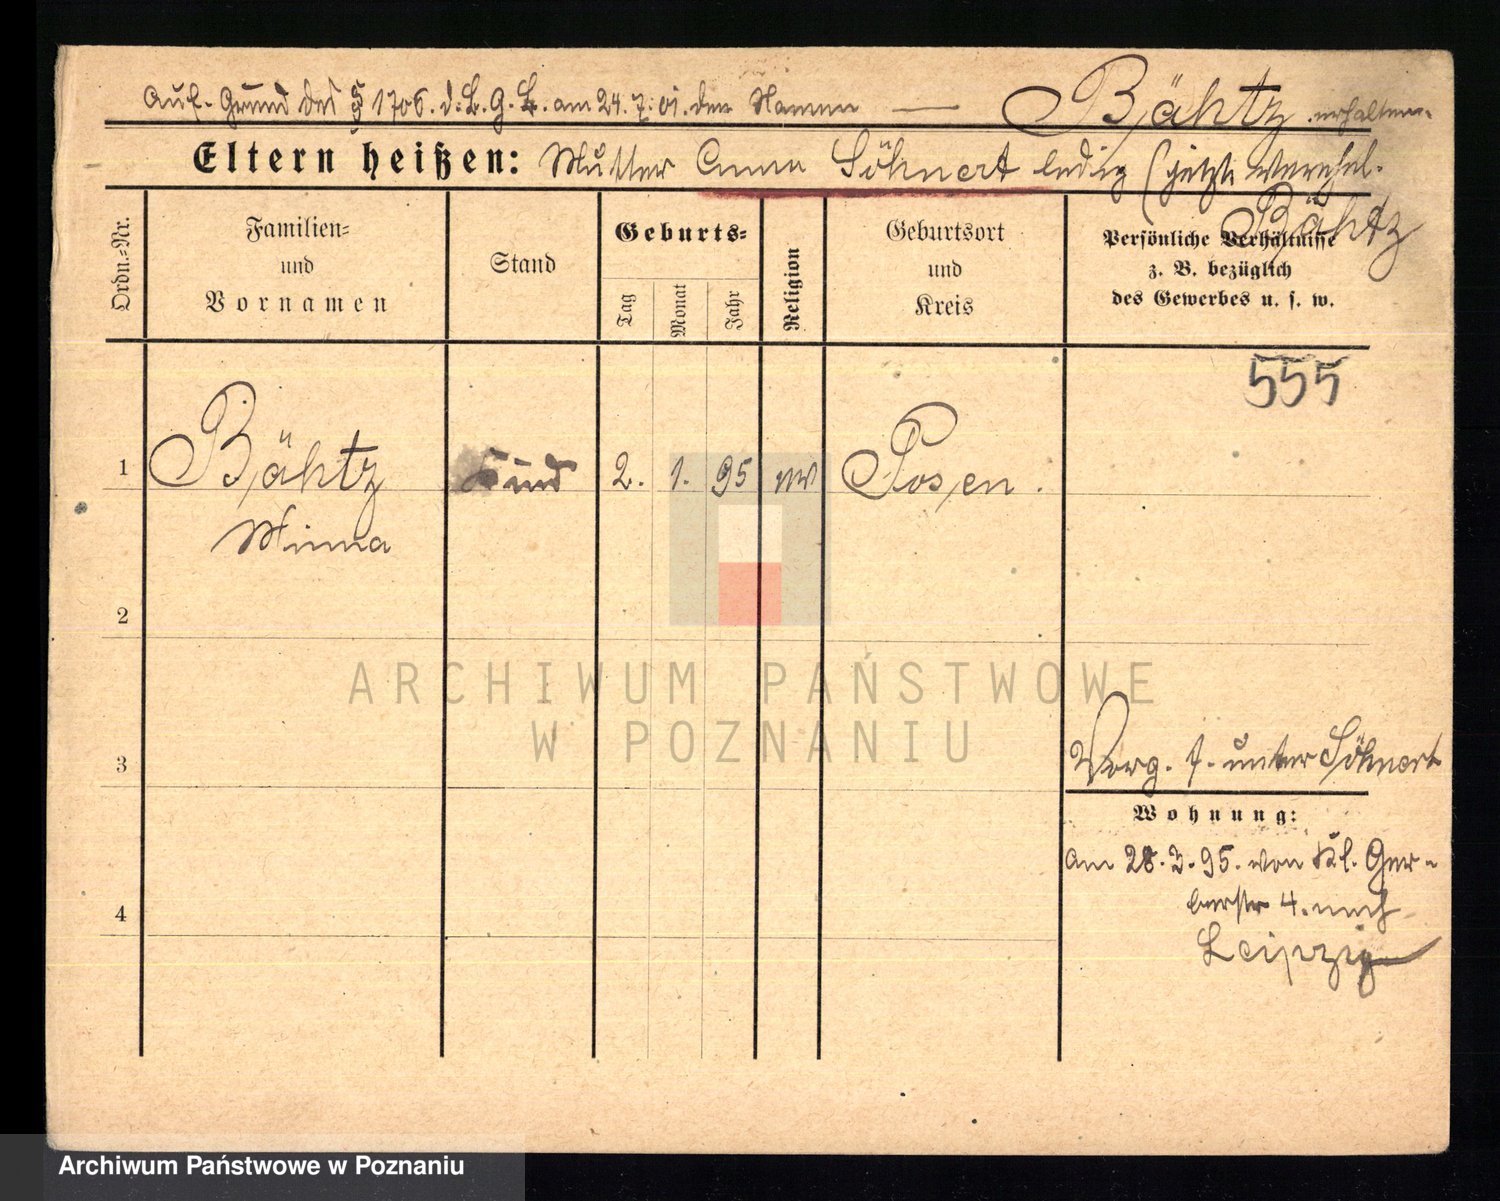 Auf Grund des § 1706. d. B. G. B. am 24.7.01. den Namen — Bähtz erhalten.
Eltern heißen: Mutter Anna Söhnert ledig (jetzt verehel.
Bähtz
Ordn.=Nr.
Familien=
und
Vornamen
Stand
Geburts=
Tag
Monat
Jahr
Religion
Geburtsort
und
Kreis
Persönliche Verhältnisse
z. B. bezüglich
des Gewerbes u. s. w.
555
1 Bähtz Kind 2. 1. 95 Posen.
Minna
2
ARCHIWUM PAŃSTWOWE
W POZNANIU
3
Vorg. f. unter Söhnert
Wohnung:
am 28.3.95. von Kl. Ger-
berstr 4. nach
4
Leipzig
Archiwum Państwowe w Poznaniu